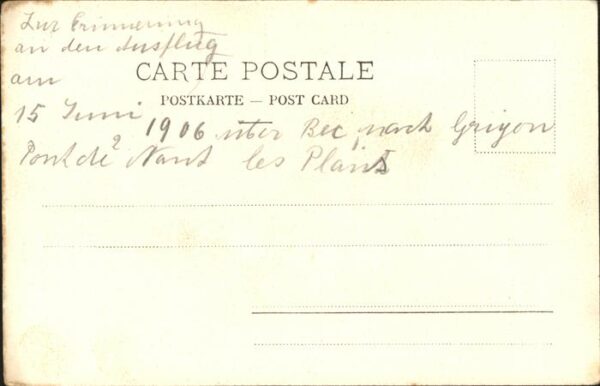 Zur Erinnerung
an den Ausflug
am
CARTE POSTALE
POSTKARTE — POST CARD
15 Juni 1906 über Bex nach Griyon
Pont de 2 Nant les Plans